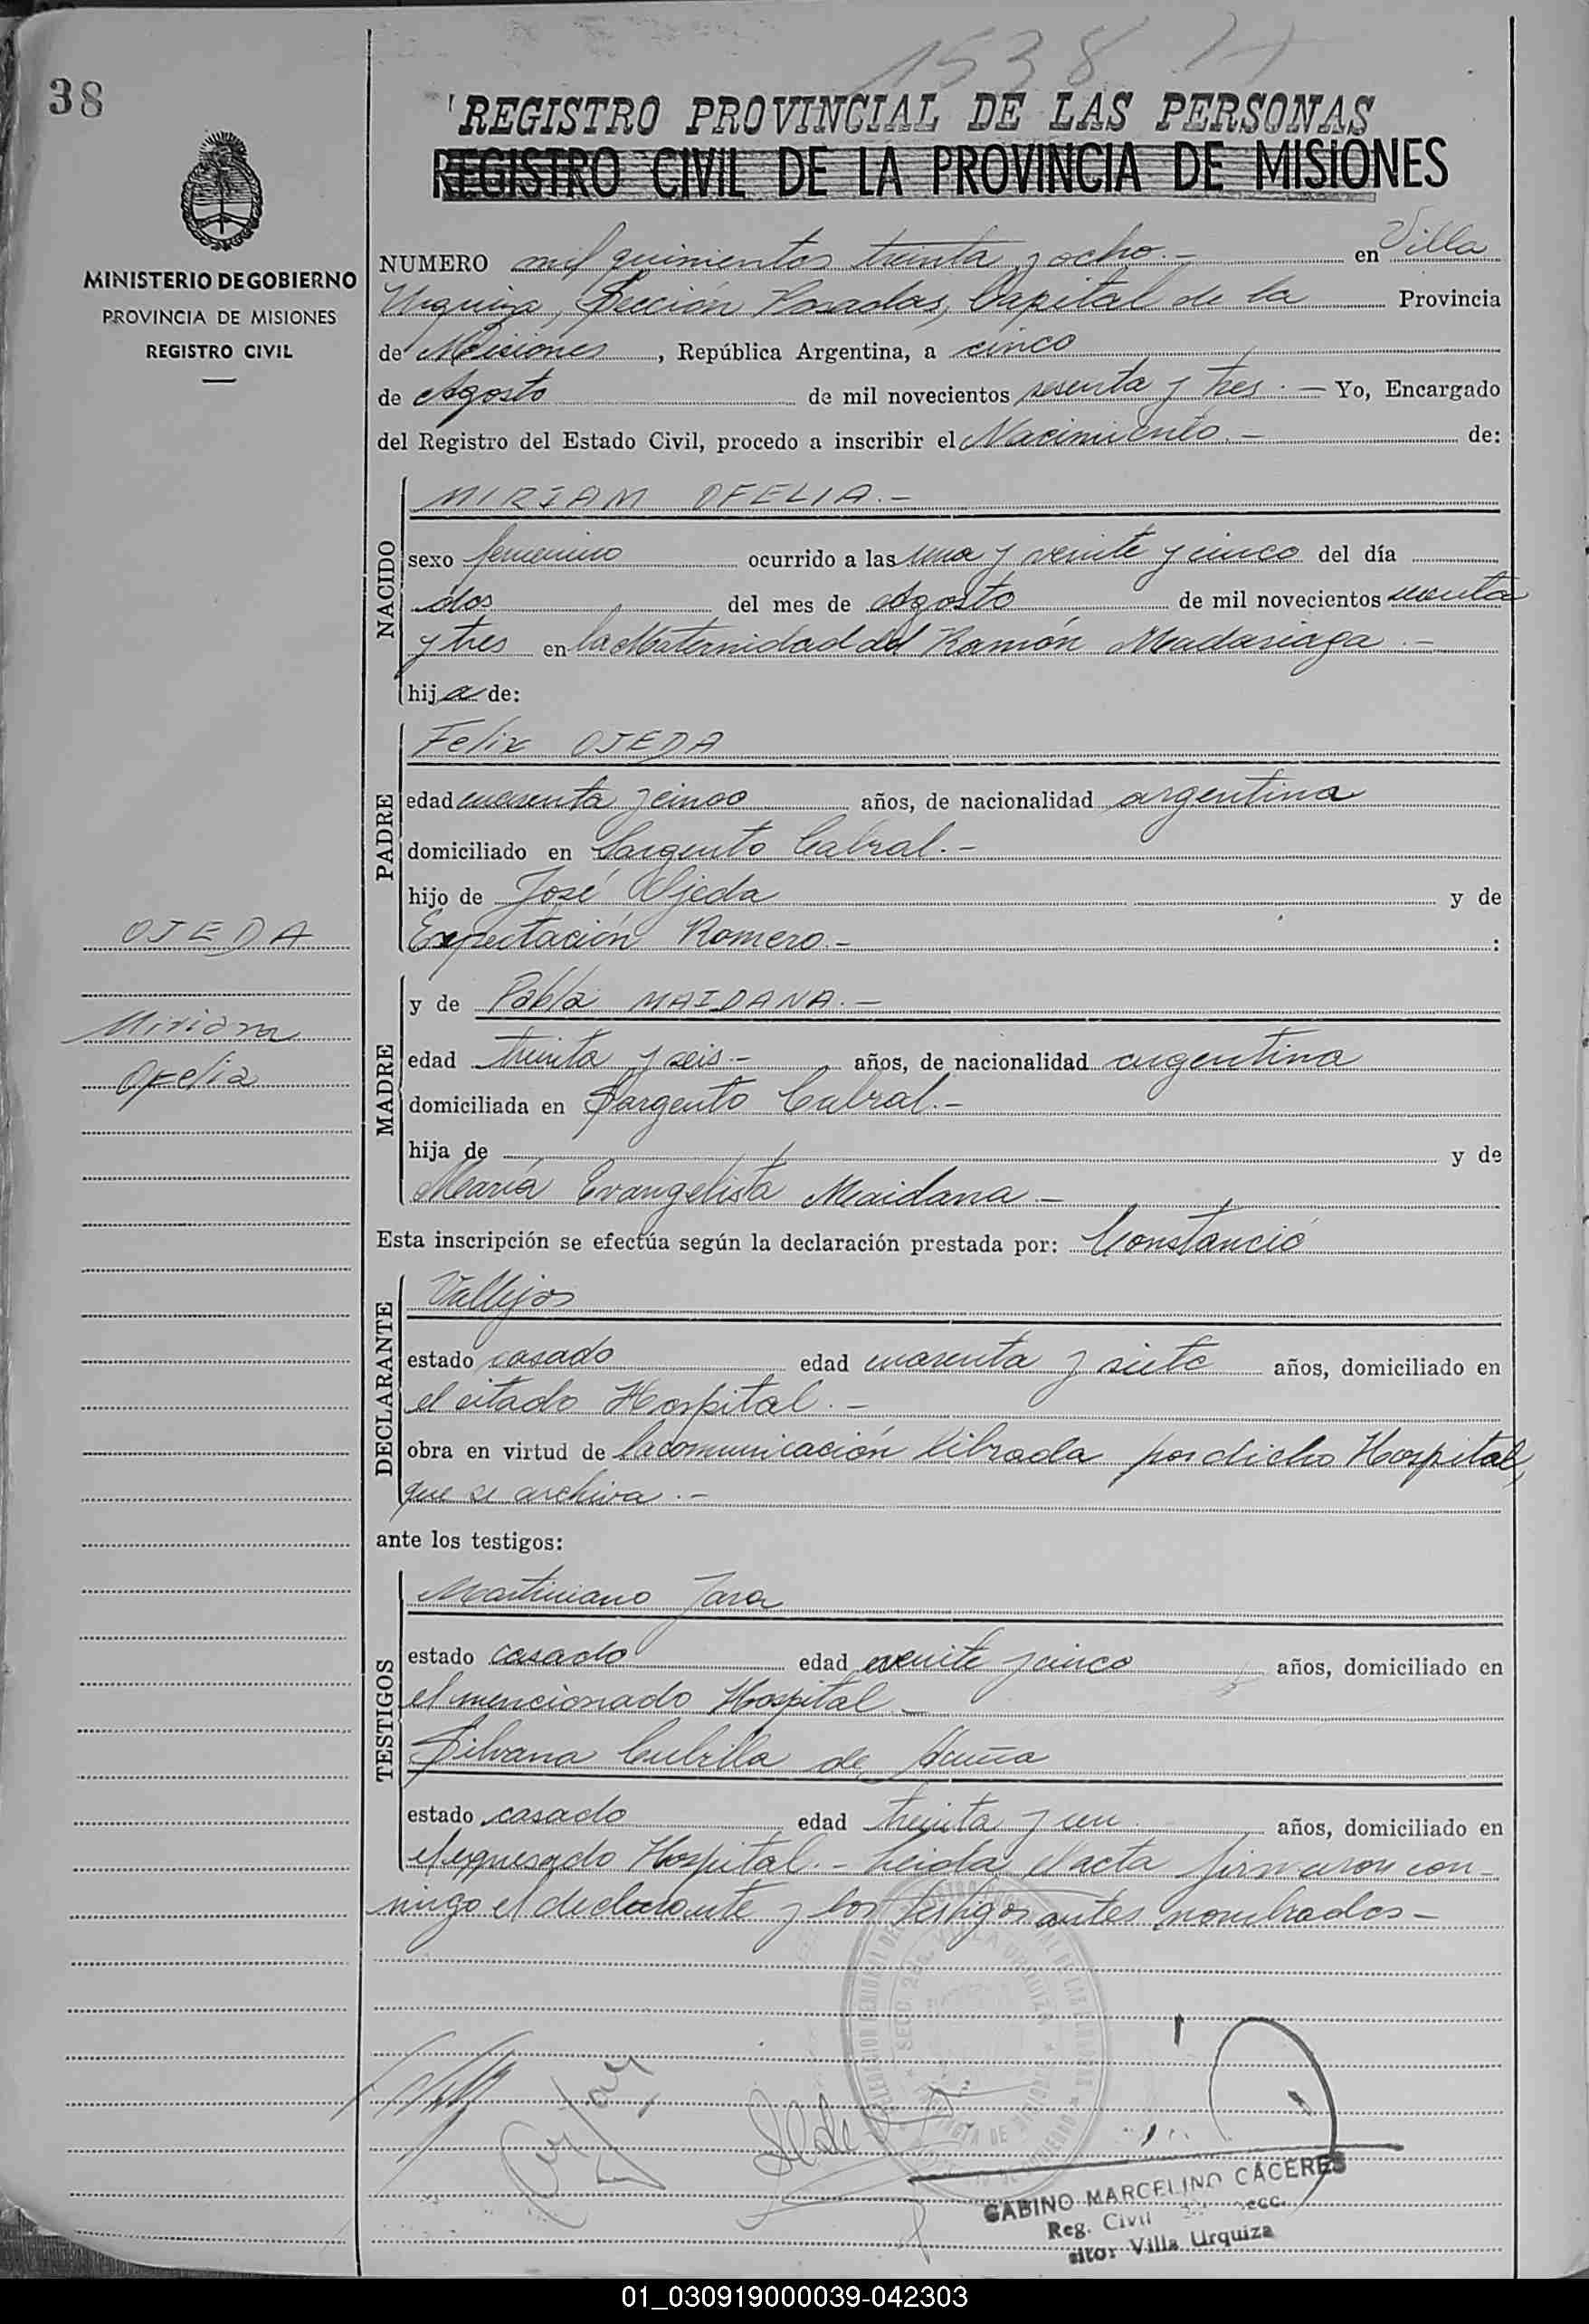 38
1538
REGISTRO PROVINCIAL DE LAS PERSONAS
REGISTRO CIVIL DE LA PROVINCIA DE MISIONES
MINISTERIO DE GOBIERNO
PROVINCIA DE MISIONES
REGISTRO CIVIL
NUMERO mil quinientos treinta y ocho.- en Villa
Urquiza, Sección Posadas, Capital de la Provincia
de Misiones, República Argentina, a cinco
de Agosto de mil novecientos sesenta y tres.- Yo, Encargado
del Registro del Estado Civil, procedo a inscribir el Nacimiento.- de:
NACIDO
MIRIAM OFELIA.-
sexo femenino ocurrido a las una y veinte y cinco del día
dos del mes de Agosto de mil novecientos sesenta
y tres en la Maternidad del Ramón Madariaga.-
hija de:
PADRE
Felix OJEDA
edad cuarenta y cinco años, de nacionalidad argentina
domiciliado en Sargento Cabral.-
hijo de José Ojeda y de
Expectación Romero.- :
OJEDA
Miriam
Ofelia
MADRE
y de Pabla MAIDANA.-
edad treinta y seis.- años, de nacionalidad argentina
domiciliada en Sargento Cabral.-
hija de y de
María Evangelista Maidana.-
Esta inscripción se efectúa según la declaración prestada por: Constancio
DECLARANTE
Vallejos
estado casado edad cuarenta y siete años, domiciliado en
el citado Hospital.-
obra en virtud de la comunicación librada por dicho Hospital,
que se archiva.-
ante los testigos:
TESTIGOS
Martiniano Jara
estado casado edad veinte y cinco años, domiciliado en
el mencionado Hospital.-
Silvana Cubilla de Acuña
estado casado edad treinta y un años, domiciliado en
el expresado Hospital.- Leída el acta firmaron con-
migo el declarante y los testigos antes nombrados-
SECC. 2da. VILLA URQUIZA
GABINO MARCELINO CÁCERES
Reg. Civil Secc.
Villa Urquiza
01_030919000039-042303